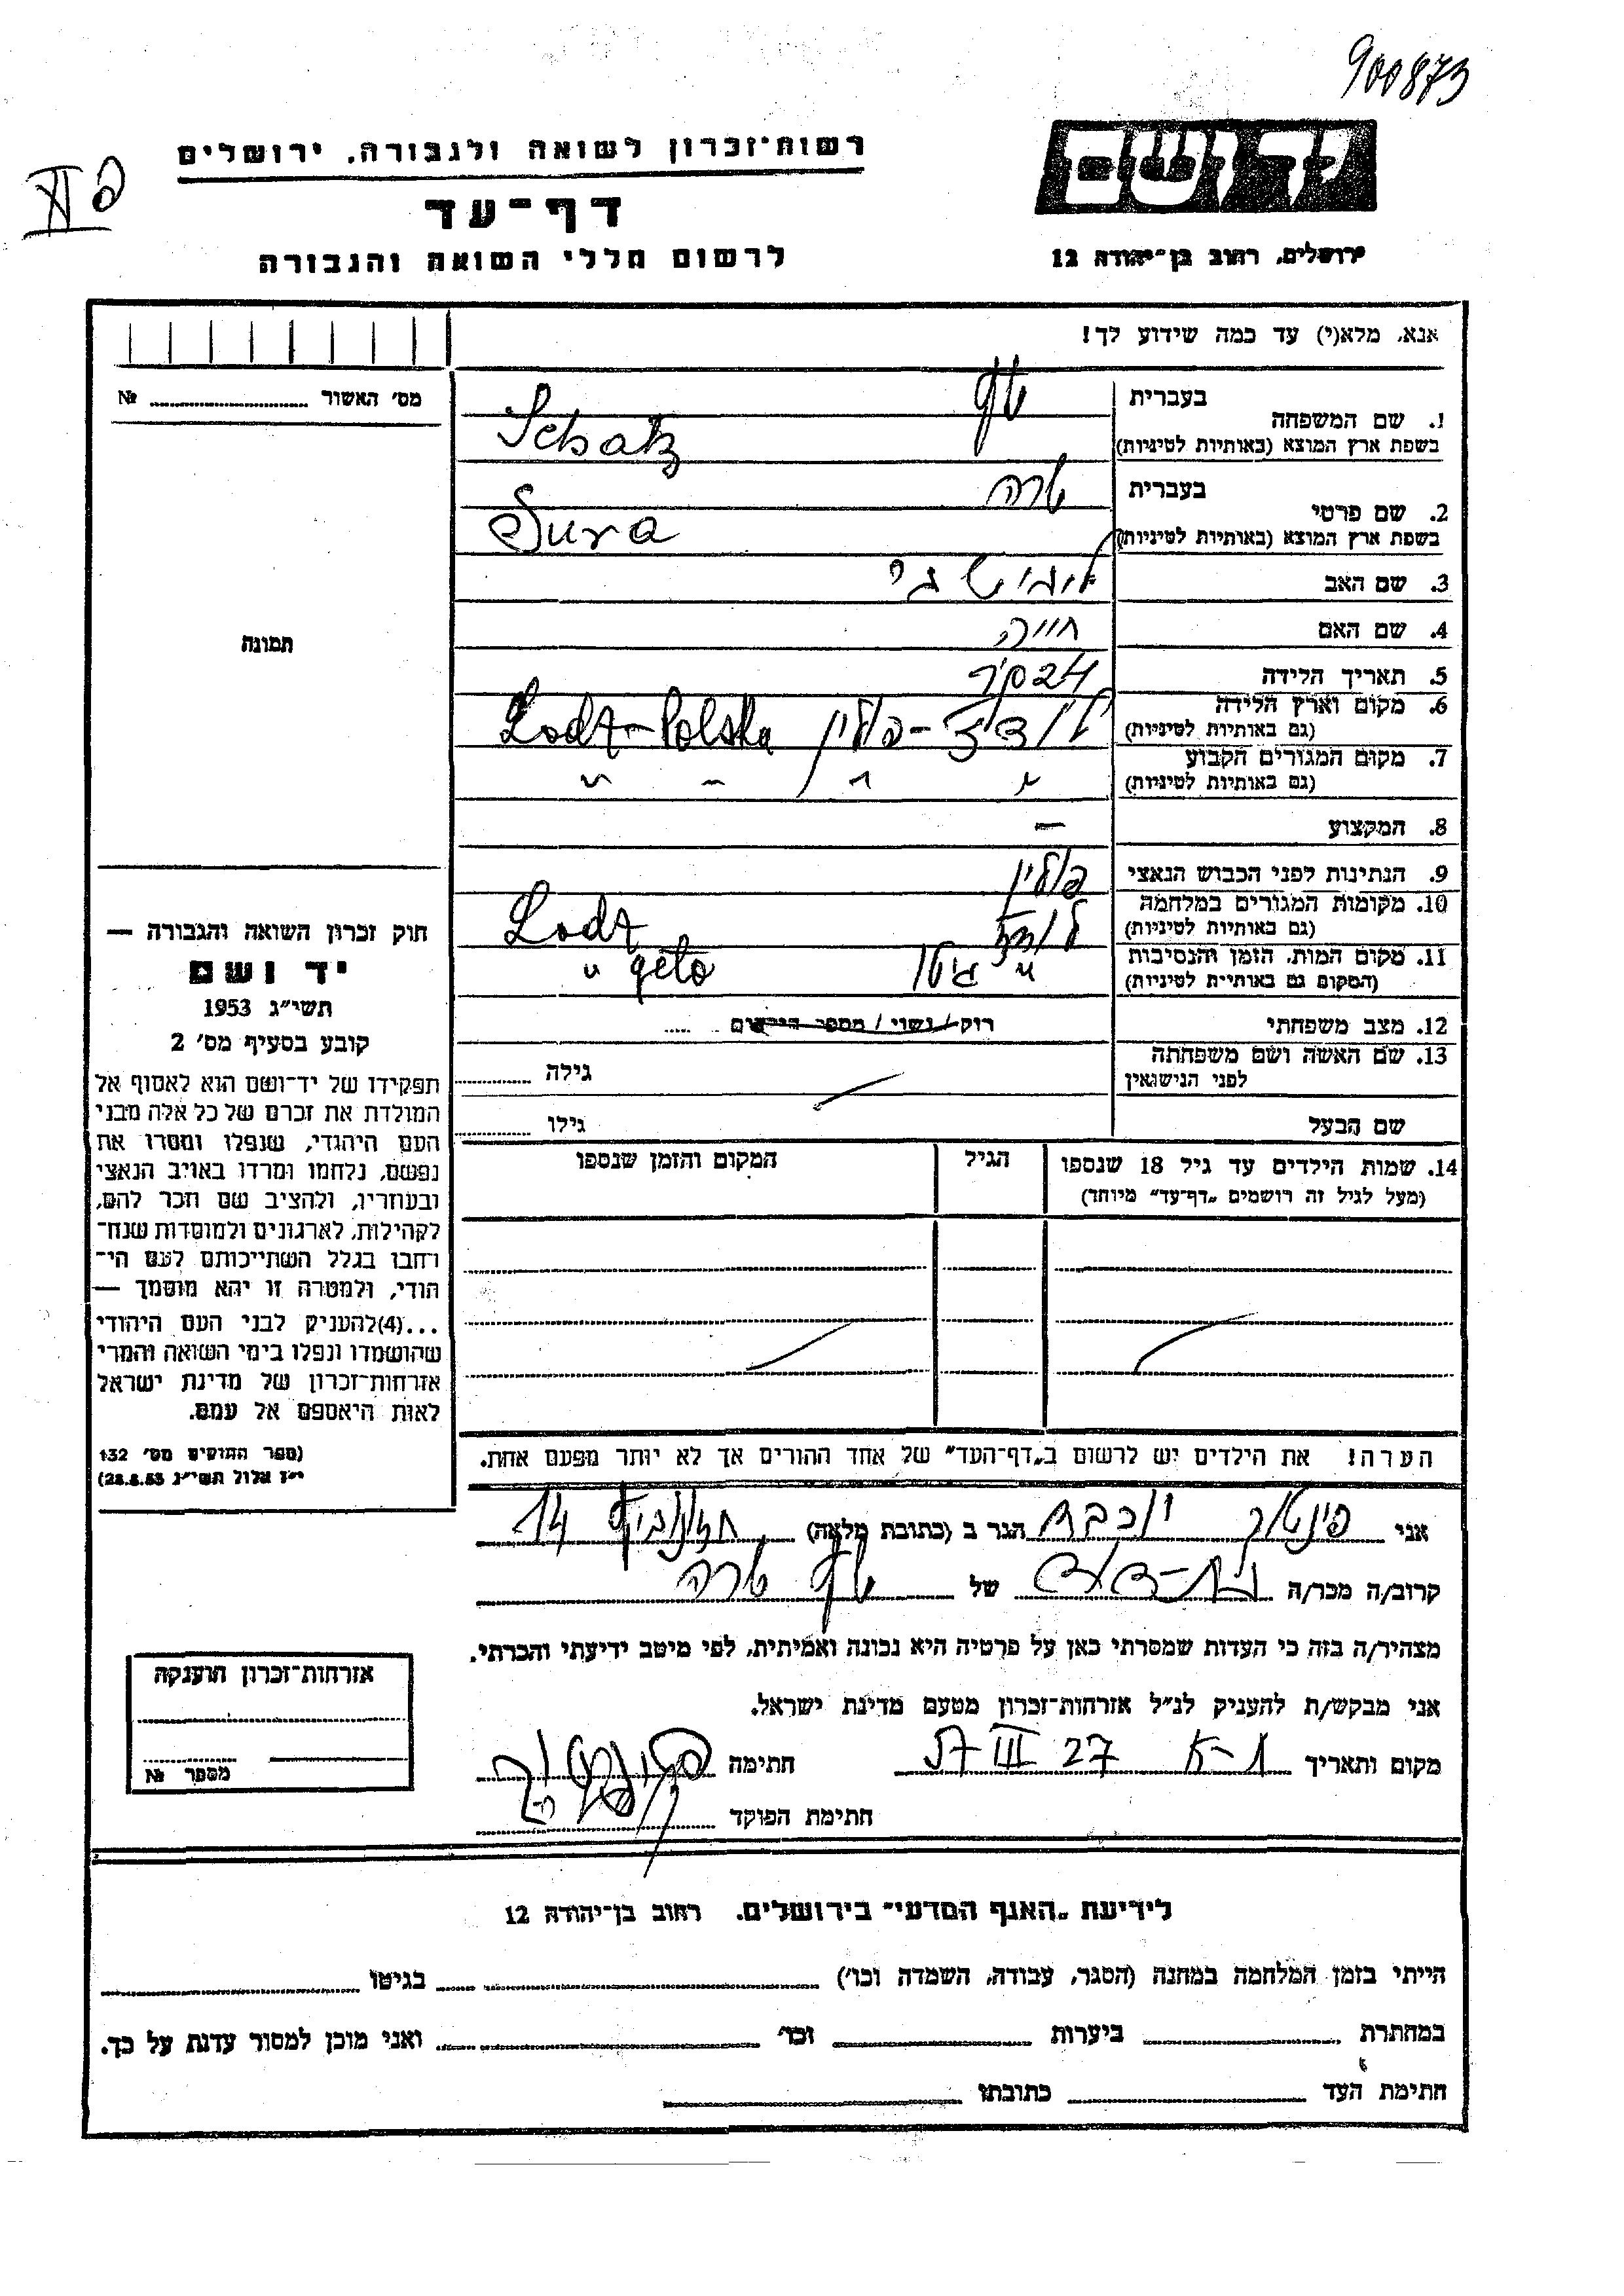 900873
רשות־זכרון לשואה ולגבורה, ירושלים
דף־עד
לרשום חללי השואה והגבורה
ירושלים, רחוב בן־יהודה 12
אנא, מלא(י) עד כמה שידוע לך!
מס׳ האשור № 
1. שם המשפחה
בעברית שץ
בשפת ארץ המוצא (באותיות לטיניות) Schatz
2. שם פרטי
בעברית שרה
בשפת ארץ המוצא (באותיות לטיניות) Sura
3. שם האב
4. שם האם חייה
תמונה
5. תאריך הלידה
6. מקום וארץ הלידה
(גם באותיות לטיניות) לודז׳ - פולין Lodz - Polska
7. מקום המגורים הקבוע
(גם באותיות לטיניות) " " " "
8. המקצוע —
9. הנתינות לפני הכבוש הנאצי פולין
10. מקומות המגורים במלחמה
(גם באותיות לטיניות) לודז׳ Lodz
11. מקום המות, הזמן והנסיבות
(המקום גם באותיית לטיניות) " גיטו " geto
12. מצב משפחתי רווק / נשוי / מספר הילדים
13. שם האשה ושם משפחתה
לפני הנישואין
גילה
שם הבעל גילו
14. שמות הילדים עד גיל 18 שנספו
(מעל לגיל זה רושמים „דף־עד״ מיוחד)
הגיל
המקום והזמן שנספו
חוק זכרון השואה והגבורה —
יד ושם
תשי״ג 1953
קובע בסעיף מס׳ 2
תפקידו של יד־ושם הוא לאסוף אל
המולדת את זכרם של כל אלה מבני
העם היהודי, שנפלו ומסרו את
נפשם, נלחמו ומרדו באויב הנאצי
ובעוזריו, ולהציב שם וזכר להם,
לקהילות, לארגונים ולמוסדות שנח־
רחבו בגלל השתייכותם לעם הי־
הודי, ולמטרה זו יהא מוסמך —
...(4)להעניק לבני העם היהודי
שהושמדו ונפלו בימי השואה והמרי
אזרחות־זכרון של מדינת ישראל
לאות היאספם אל עמם.
(ספר החוקים מס׳ 132
י״ז אלול תשי״ג 28.8.53)
הערה! את הילדים יש לרשום ב„דף־העד״ של אחד ההורים אך לא יותר מפעם אחת.
אני יוכבד הגר ב (כתובת מלאה) 14
קרוב/ה מכר/ה של שץ שרה
מצהיר/ה בזה כי העדות שמסרתי כאן על פרטיה היא נכונה ואמיתית, לפי מיטב ידיעתי והכרתי.
אני מבקש/ת להעניק לנ״ל אזרחות־זכרון מטעם מדינת ישראל.
מקום ותאריך 27 III 57 חתימה
חתימת הפוקד
אזרחות־זכרון הוענקה
מספר №
לידיעת „האגף המדעי״ בירושלים, רחוב בן־יהודה 12
הייתי בזמן המלחמה במחנה (הסגר, עבודה, השמדה וכו׳) בגיטו
במחתרת ביערות וכו׳ ואני מוכן למסור עדות על כך.
חתימת העד כתובתו